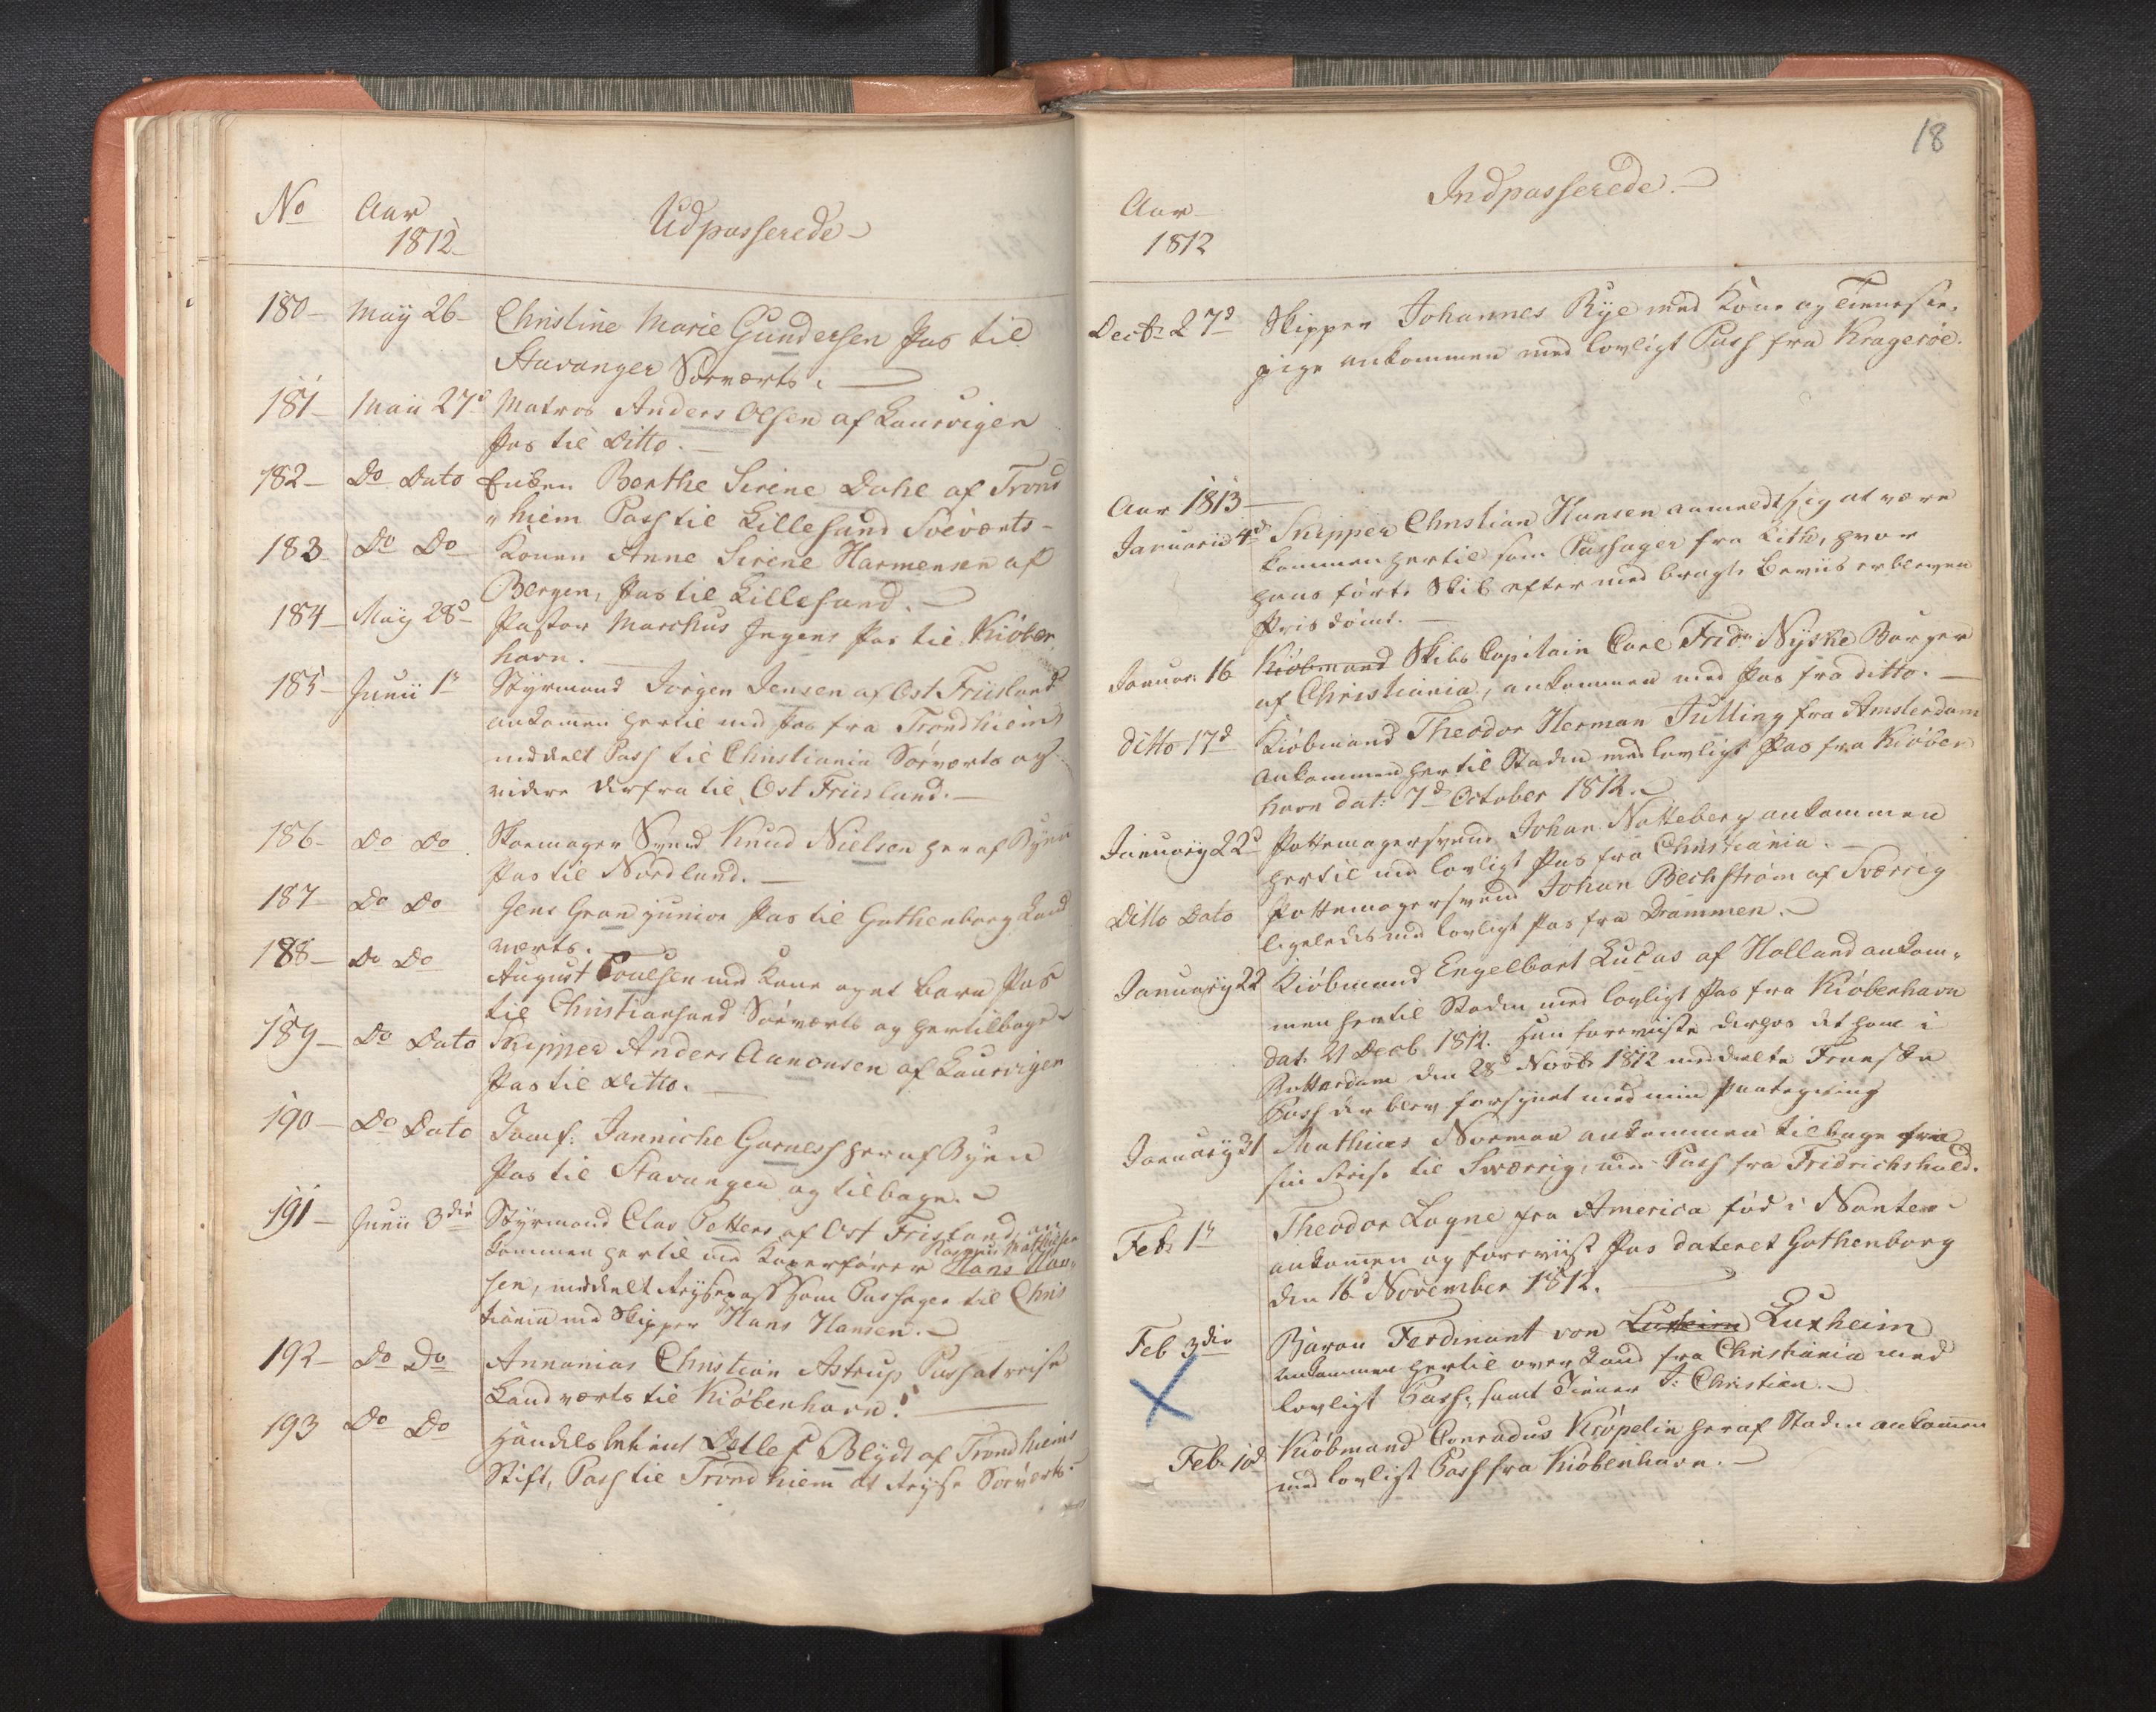 No Aar
1812
Udpasserede
180 May 26 Christine Marie Gundersen Pas til
Stavanger Søeværts.
181 Maii 27d Matros Anders Olsen af Laurvigen
Pas til Ditto.
182 Do Dato Enken Berthe Sirene Dahl af Trond
hiem Pass til Lillesand Søeværts
183 Do Do Konen Anne Sirene Harmensen af
Bergen, Pas til Lillesand.
184 May 28d Pastor Marchus Jrgens Pas til Kiøben
havn.
185 Junii 1r Styrmand Jørgen Jensen af Ost Friisland
ankommen hertil med Pas fra Trondhiem
meddelt Pass til Christiania Søeværts og
videre derfra til Ost Friisland.
186 Do Do Skoemager Svend Knud Nielsen her af Byen
Pas til Nordland.
187 Do Do Jens Gran junior Pas til Gothenborg Land
værts.
188 Do Do August Poulsen med Kone og et barn Pas
til Christiansand Søeværts og her tilbage
189 Do Dato Skipper Anders Aanonsen af Laurvigen
Pas til Ditto.
190 Do Dato Jomf: Janniche Garness her af Byen
Pas til Stavanger og tilbage.
191 Junii 3die Styrmand Clas Petters af Ost Frisland, an
Rasmus Mathiesen
kommen hertil med Kaperfører Hans Han
sen, meddelt Reysepass som Passager til Chris
tiania med Skipper Hans Hansen.
192 Do Do Annanias Christian Astrup Pass at reise
Landværts til Kiøbenhavn.
193 Do Do Handelsbetient Detlef Blydt af Trondhiems
Stift, Pass til Trondhiem at Reyse Søeværts.
18
Aar
1812
Indpasserede.
Decbr 27d Skipper Johannes Rye med Kone og Tieneste
pige ankommen med lovligt Pass fra Kragerøe.
Aar 1813
Januarii 4d Skipper Christian Hansen anmeldt sig at være
kommen hertil som Passager fra Lith, hvor
hans førte Skib efter med bragte Beviis er bleven
Prisdømt.
Januar: 16 Kiøbmand Skibs Capitain Carl Fridr. Nyske Borger
af Christiania, ankommen med Pas fra ditto.
ditto 17d Kiøbmand Theodor Herman Tulling fra Amsterdam
ankommen her til Staden med lovligt Pas fra Kiøben
havn dat: 7d October 1812.
January 22d Pottemagersvend Johan Notteberg ankommen
hertil med lovligt Pas fra Christiania.
Ditto Dato Pottemagersvend Johan Bechstrøm af Sværrig
ligeledes med lovligt Pas fra Drammen.
January 22 Kiøbmand Engelbart Lucas af Holland ankom
men her til Staden med lovligt Pas fra Kiøbenhavn
dat. 21 Decb. 1812. Han foreviiste derhos det ham i
Rotterdam den 28d Novbr 1812 meddeelte Franske
Pass der blev forsynet med min Paategning
January 31 Mathias Norman ankommen tilbage fra
sin Reise til Sværrig, med Pass fra Fridrichshald.
Feb: 1r Theodor Layne fra America fød i Nantes
ankommen og foreviist Pas dateret Gothenborg
den 16d November 1812.
Feb 3die Baron Ferdinant von Luxheim Luxheim
ankommen hertil over Land fra Christiania med
lovligt Pass, samt Tiener J: Christian.
Feb. 10d Kiøbmand Conradus Krøpelin her af Staden ankommen
med lovligt Pass fra Kiøbenhavn.